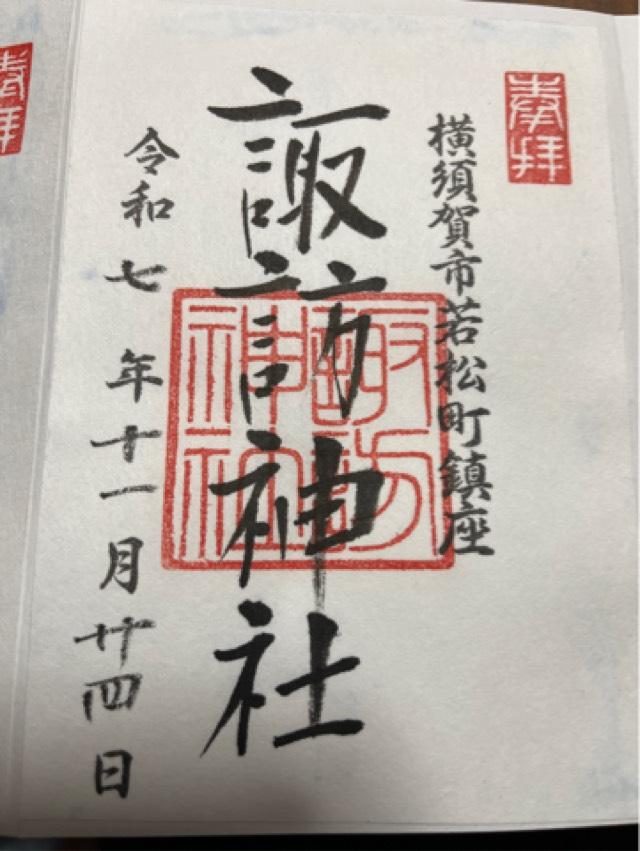 奉拝
横須賀市若松町鎮座
諏訪神社
諏訪神社
令和七年十一月廿四日
奉拝